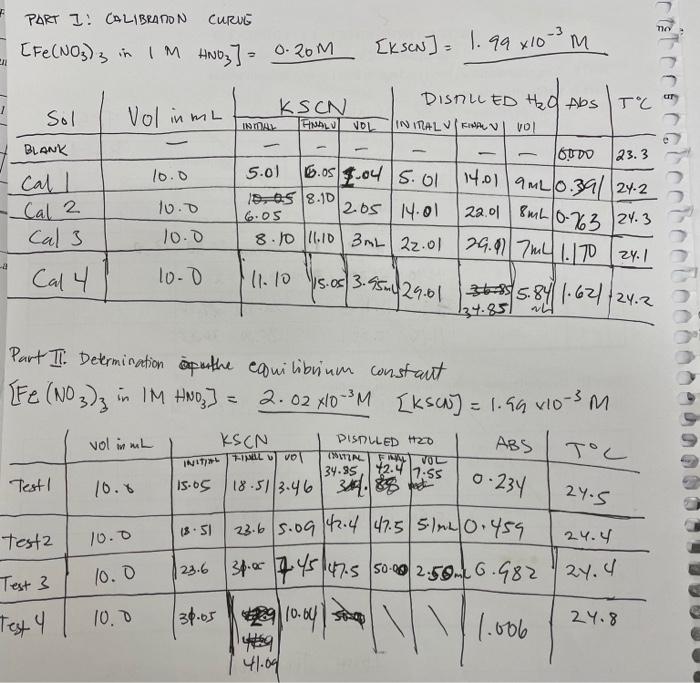 PART I: CALIBRATION CURVE
[Fe(NO3)3 in 1 M HNO3] = 0.20M [KSCN] = 1.99 x10-3 M
Sol Vol in mL KSCN DISTILLED H2O Abs T°C
INITIAL FINAL V VOL INITIAL V FINAL V VOL
BLANK — — — — — — — 0.000 23.3
Cal 1 10.0 5.01 6.05 1.04 5.01 14.01 9mL 0.391 24.2
Cal 2 10.0 6.05 8.10 2.05 14.01 22.01 8mL 0.763 24.3
Cal 3 10.0 8.10 11.10 3mL 22.01 29.01 7mL 1.170 24.1
Cal 4 10.0 11.10 15.05 3.95mL 29.01 34.85 5.84 mL 1.621 24.2
Part II: Determination the equilibrium constant
[Fe(NO3)3 in 1M HNO3] = 2.02 x10-3 M [KSCN] = 1.99 x10-3 M
vol in mL KSCN DISTILLED H2O ABS T°C
INITIAL FINAL V VOL INITIAL FINAL VOL
Test 1 10.0 15.05 18.51 3.46 34.85 42.4 7.55 0.234 24.5
Test 2 10.0 18.51 23.6 5.09 42.4 47.5 5.1mL 0.459 24.4
Test 3 10.0 23.6 7.45 47.5 50.00 2.50mL 0.982 24.4
Test 4 10.0 31.05 41.09 10.04 \ \ 1.006 24.8